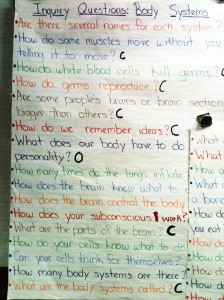 Inquiry Questions: Body Systems
• Are there several names for each system?
• How do some muscles move without you
telling it to move? C
• How do white blood cells kill germs?
• How do germs reproduce? C
• Are some people's brains or brain section
bigger than others? C
• How do we remember ideas? C
• What does our body have to do
personality? O
• How many times do the lungs inflate
• How does the brain know what to
• How does the brain control the body
• How does your subconscious work?
• What are the parts of the brain? C
• How do your cells know what to do
• Can your cells think for themselves?
• How many body systems are there?
• What are the body systems called? C